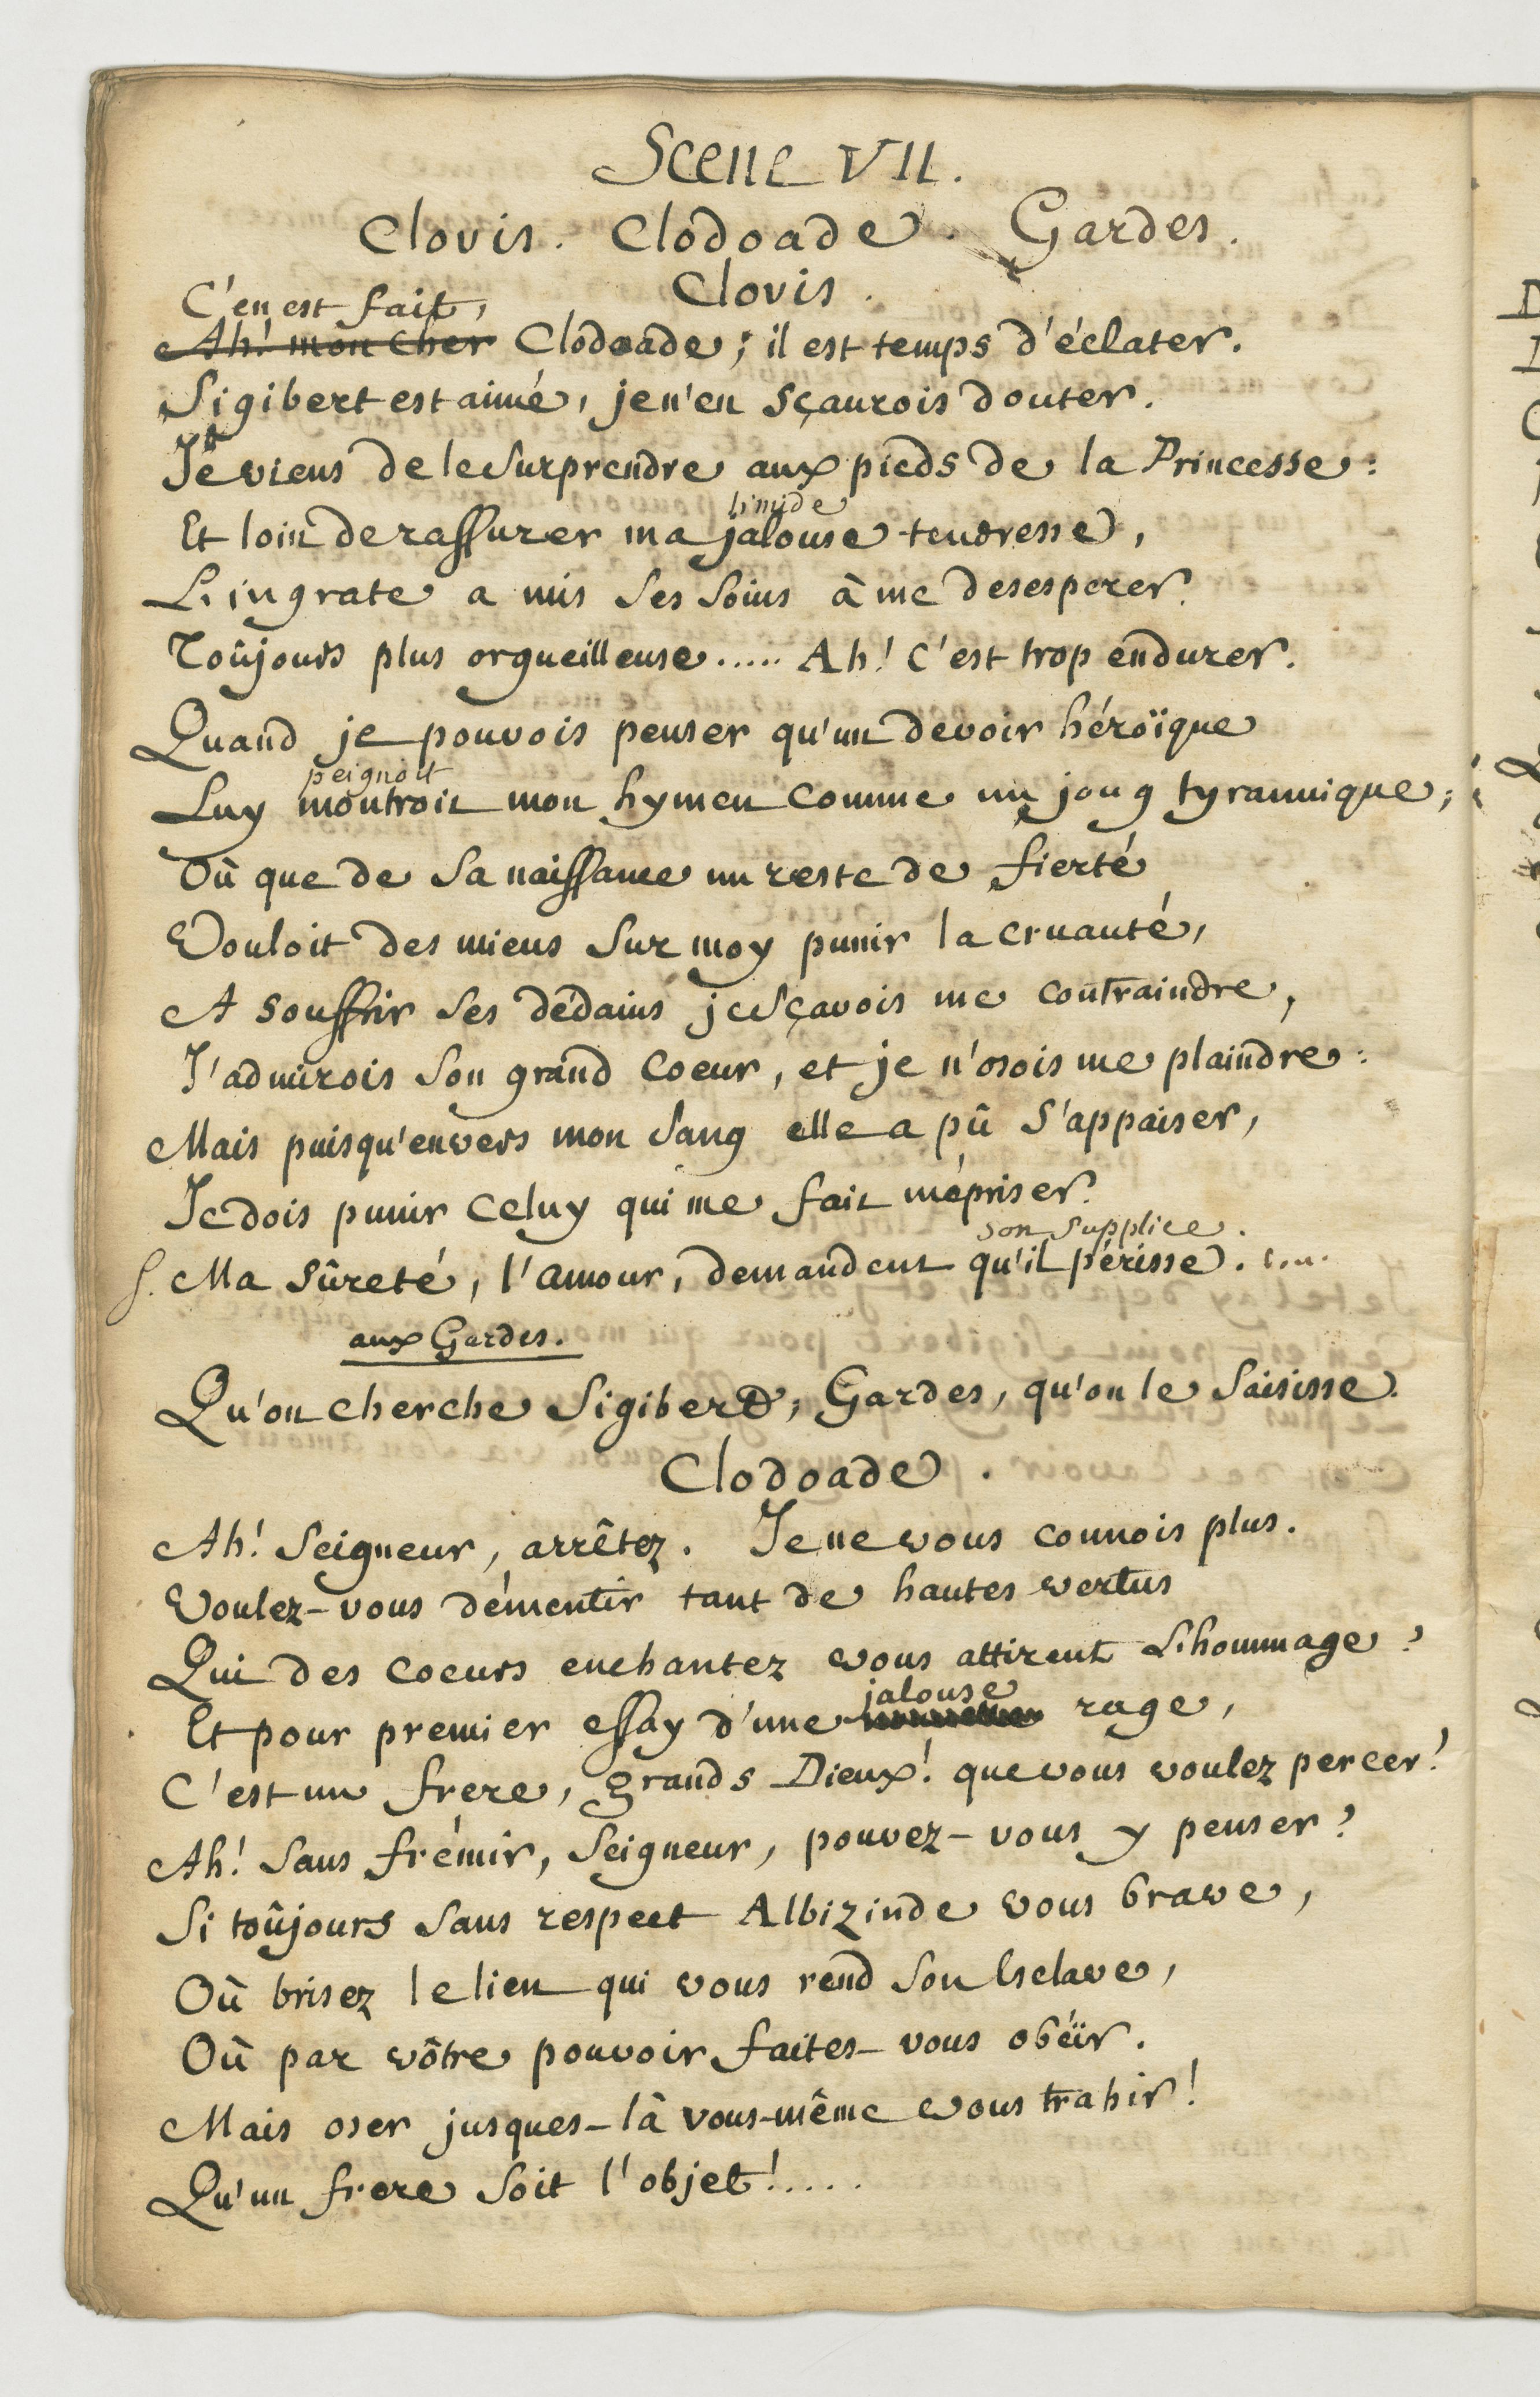 Scene VII.
Clovis. Clodoade. Gardes.
Clovis.
C'en est fait,
Ah! mon cher Clodoade; il est temps d'éclater.
Sigibert est aimé, je n'en sçaurois douter.
Je viens de le surprendre aux pieds de la Princesse:
timide
Et loin de rassurer ma jalouse tendresse,
L'ingrate a mis ses soins à me desesperer.
Toûjours plus orgueilleuse..... Ah! c'est trop endurer.
Quand je pouvois penser qu'un devoir héroïque
peignoit
Luy montroit mon hymen comme un joug tyrannique;
Où que de sa naissance un reste de fierté
Vouloit des miens sur moy punir la cruauté,
A souffrir ses dédains je sçavois me contraindre,
J'admirois son grand coeur, et je n'osois me plaindre:
Mais puisqu'envers mon sang elle a pû s'appaiser,
Je dois punir celuy qui me fait mépriser.
son supplice.
S. Ma sûreté, l'amour, demandent qu'il périsse.
aux Gardes.
Qu'on cherche Sigibert; Gardes, qu'on le saisisse.
Clodoade.
Ah! Seigneur, arrêtez. Je ne vous connois plus.
Voulez-vous démentir tant de hautes vertus
Qui des coeurs enchantez vous attirent l'hommage?
jalouse
Et pour premier essay d'une rage,
C'est un frere, grands Dieux! que vous voulez percer!
Ah! sans frémir, Seigneur, pouvez-vous y penser?
Si toûjours sans respect Albizinde vous brave,
Où brisez le lien qui vous rend son Esclave,
Où par vôtre pouvoir faites-vous obéïr.
Mais oser jusques-là vous-même vous trahir!
Qu'un frere soit l'objet!.....